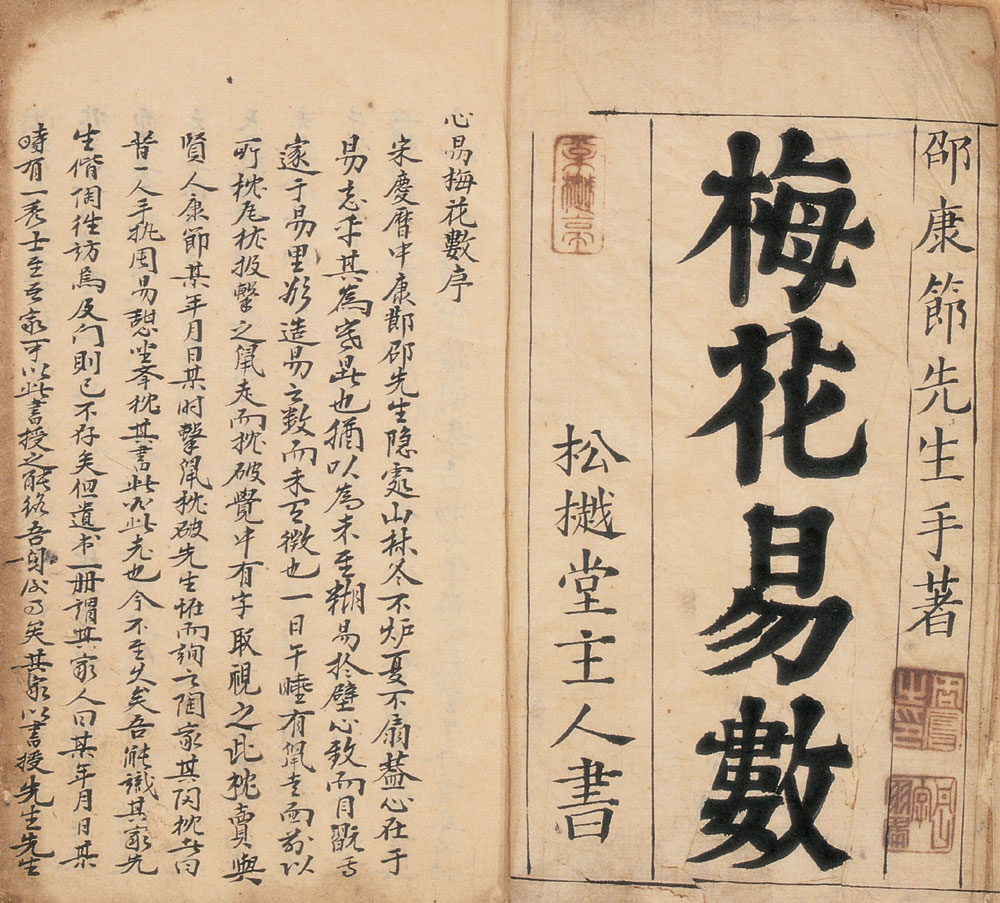 邵康節先生手著
梅花易數
松樾堂主人書
心易梅花數序
宋慶曆中康節邵先生隐處山林冬不炉夏不扇蓋心在于
易忘乎其為寒暑也猶以為未至糊易於壁心致而目翫焉
邃于易里欲造易之数而未有徵也一日午睡有鼠走而前以
所枕瓦枕投擊之鼠走而枕破覺中有字取視之此枕賣與
賢人康節某年月日某时擊鼠枕破先生怪而詢之陶家其
昔一人手执周易憩坐奉枕其書此必此老也今不至久矣吾能識其家先
生偕陶徃訪焉及门則已不存矣但遺书一册謂其家人曰某年月日某
時有一秀士至吾家可以此書授之能終吾身後事矣其家以書授先生先生